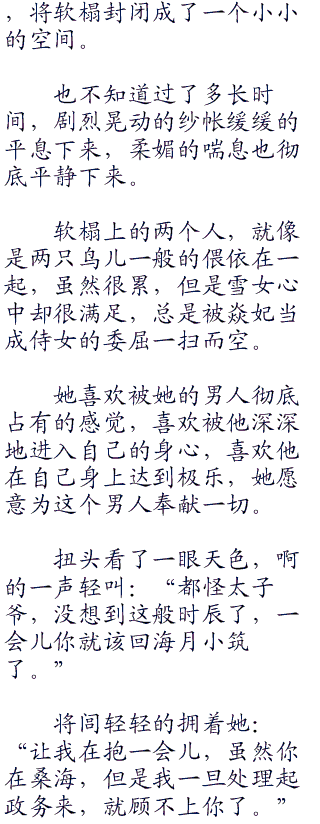 ，将软榻封闭成了一个小小
的空间。
也不知道过了多长时
间，剧烈晃动的纱帐缓缓的
平息下来，柔媚的喘息也彻
底平静下来。
软榻上的两个人，就像
是两只鸟儿一般的偎依在一
起，虽然很累，但是雪女心
中却很满足，总是被焱妃当
成侍女的委屈一扫而空。
她喜欢被她的男人彻底
占有的感觉，喜欢被他深深
地进入自己的身心，喜欢他
在自己身上达到极乐，她愿
意为这个男人奉献一切。
扭头看了一眼天色，啊
的一声轻叫：“都怪太子
爷，没想到这般时辰了，一
会儿你就该回海月小筑
了。”
将闾轻轻的拥着她：
“让我在抱一会儿，虽然你
在桑海，但是我一旦处理起
政务来，就顾不上你了。”